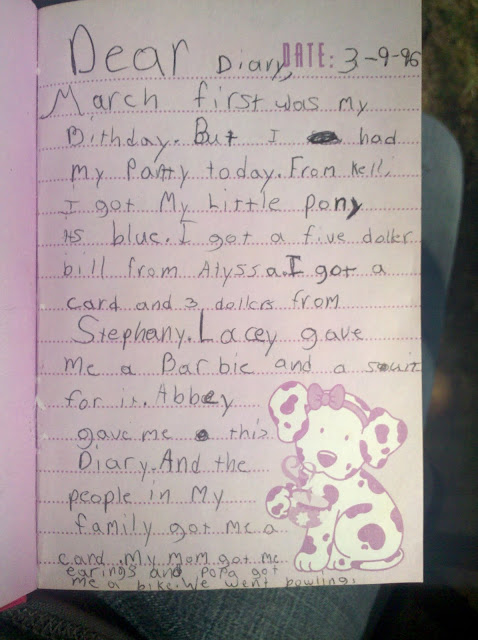 Dear Diary, DATE: 3-9-96
March first was my
Birthday. But I had
my Party today. From Kelli
I got My Little pony
its blue. I got a five doller
bill from Alyssa. I got a
card and 3 dollers from
Stephany. Lacey gave
me a Barbie and a
for it. Abbey
gave me this
Diary. And the
people in My
family got me a
card. My mom got me
earings and popa got
me a bike. We went bowling.